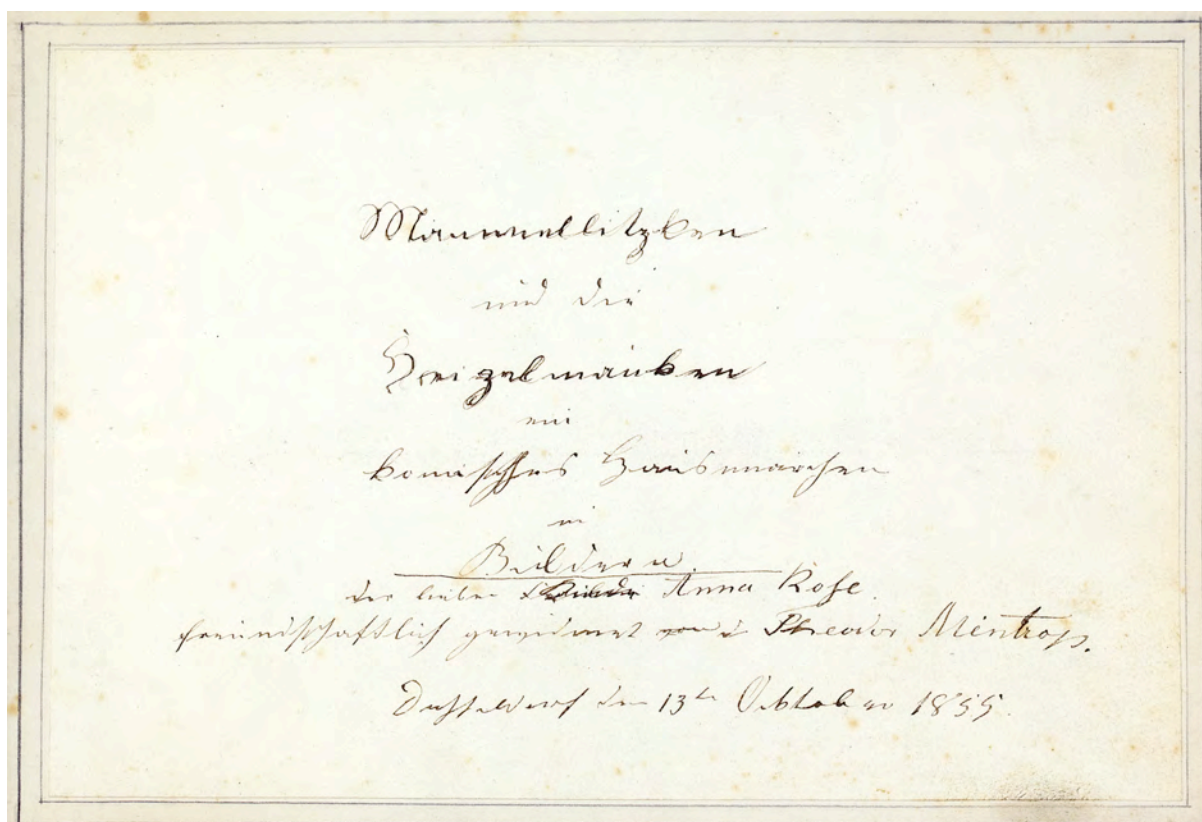 Mammellitzken
und die
Heizelmänken
ein
komisches Hausmärchen
in
Bildern.
der lieben Anna Rose.
freundschaftlich gewidmet von Theodor Mintrop.
Düsseldorf den 13ten Oktober 1855.